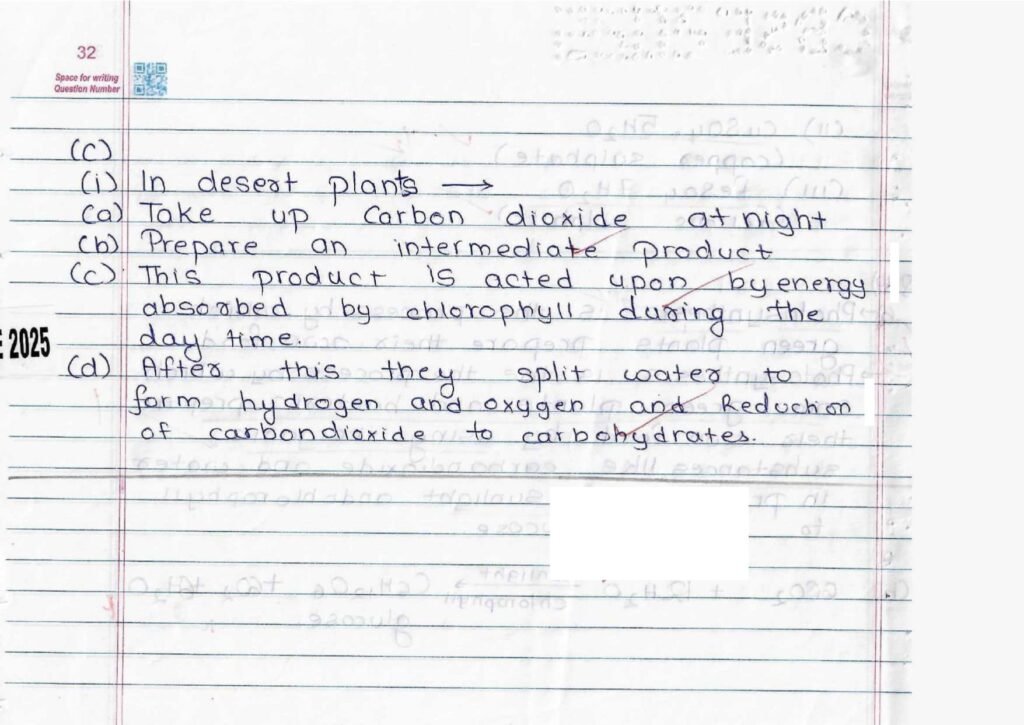 32
Space for writing
Question Number
(c)
(i) In desert plants →
(a) Take up Carbon dioxide at night
(b) Prepare an intermediate product
(c) This product is acted upon by energy
absorbed by chlorophyll during the
day time.
E 2025
(d) After this they split water to
form hydrogen and oxygen and Reduction
of carbondioxide to carbohydrates.